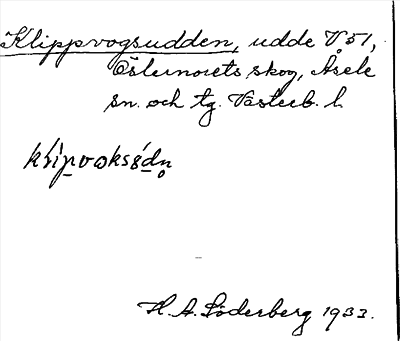 Klippvogsudden, udde V. 51,
Östernorets skog, Åsele
sn. och tg. Västerb. l.
H. A. Söderberg 1933.